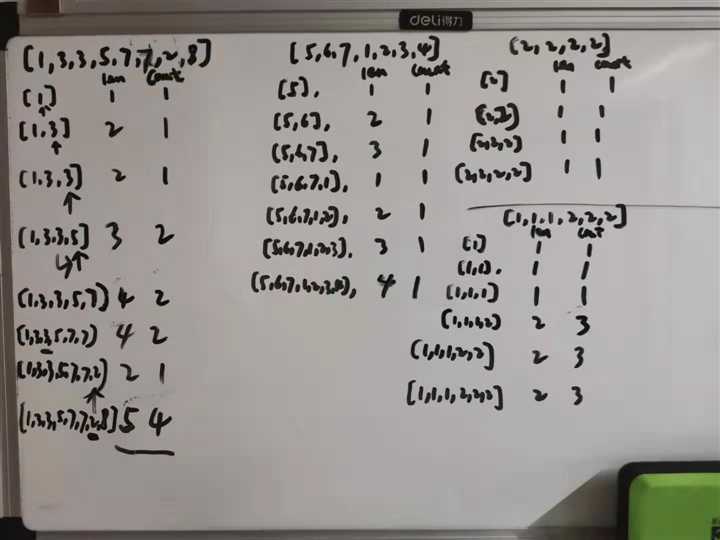 deli得力
[1,3,3,5,7,7,2,8]
len count
[1] 1 1
[1,3] 2 1
[1,3,3] 2 1
[1,3,3,5] 3 2
[1,3,3,5,7] 4 2
[1,3,3,5,7,7] 4 2
[1,3,3,5,7,7,2] 2 1
[1,3,3,5,7,7,2,8] 5 4
[5,6,7,1,2,3,4]
len count
[5], 1 1
[5,6], 2 1
[5,6,7], 3 1
[5,6,7,1], 1 1
[5,6,7,1,2], 2 1
[5,6,7,1,2,3], 3 1
[5,6,7,1,2,3,4], 4 1
[2,2,2,2]
len count
[2] 1 1
[2,2] 1 1
[2,2,2] 1 1
[2,2,2,2] 1 1
[1,1,1,2,2,2]
len count
[1] 1 1
[1,1], 1 1
[1,1,1] 1 1
[1,1,1,2] 2 3
[1,1,1,2,2] 2 3
[1,1,1,2,2,2] 2 3